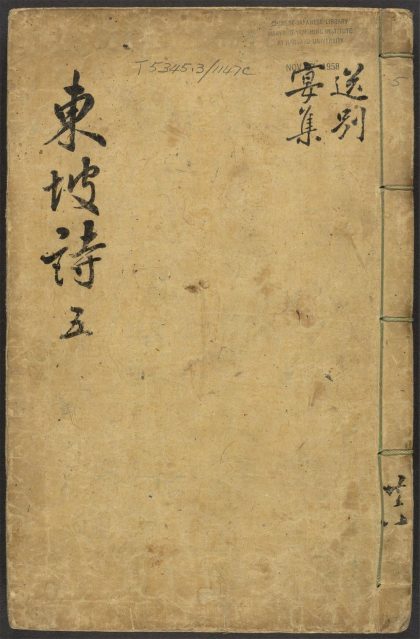 CHINESE-JAPANESE LIBRARY
HARVARD-YENCHING INSTITUTE
AT HARVARD UNIVERSITY
T 5345.3/1147C
送別
宴集
東坡詩 五
共八